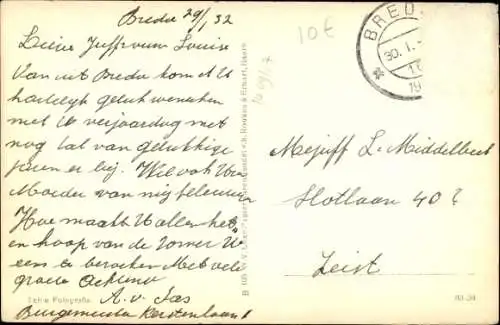 Breda 29/1 32
Lieve Juffrouw Louise
Van uit Breda kom ik U
hartelijk geluk wenschen
met U verjaardag met
nog tal van gelukkige
jaren er bij. Wil ook Uw
Moeder van mij feliciteeren
Hoe maakt U allen het
en hoop van de zomer U
eens te bezoeken Met vele
groete
A. v. Das
Burgemeester Kerstenslaan 1
Echte Fotografie
10€
BREDA
30.1.
Mejuff L. Middelbeek
Slotlaan 40
Zeist